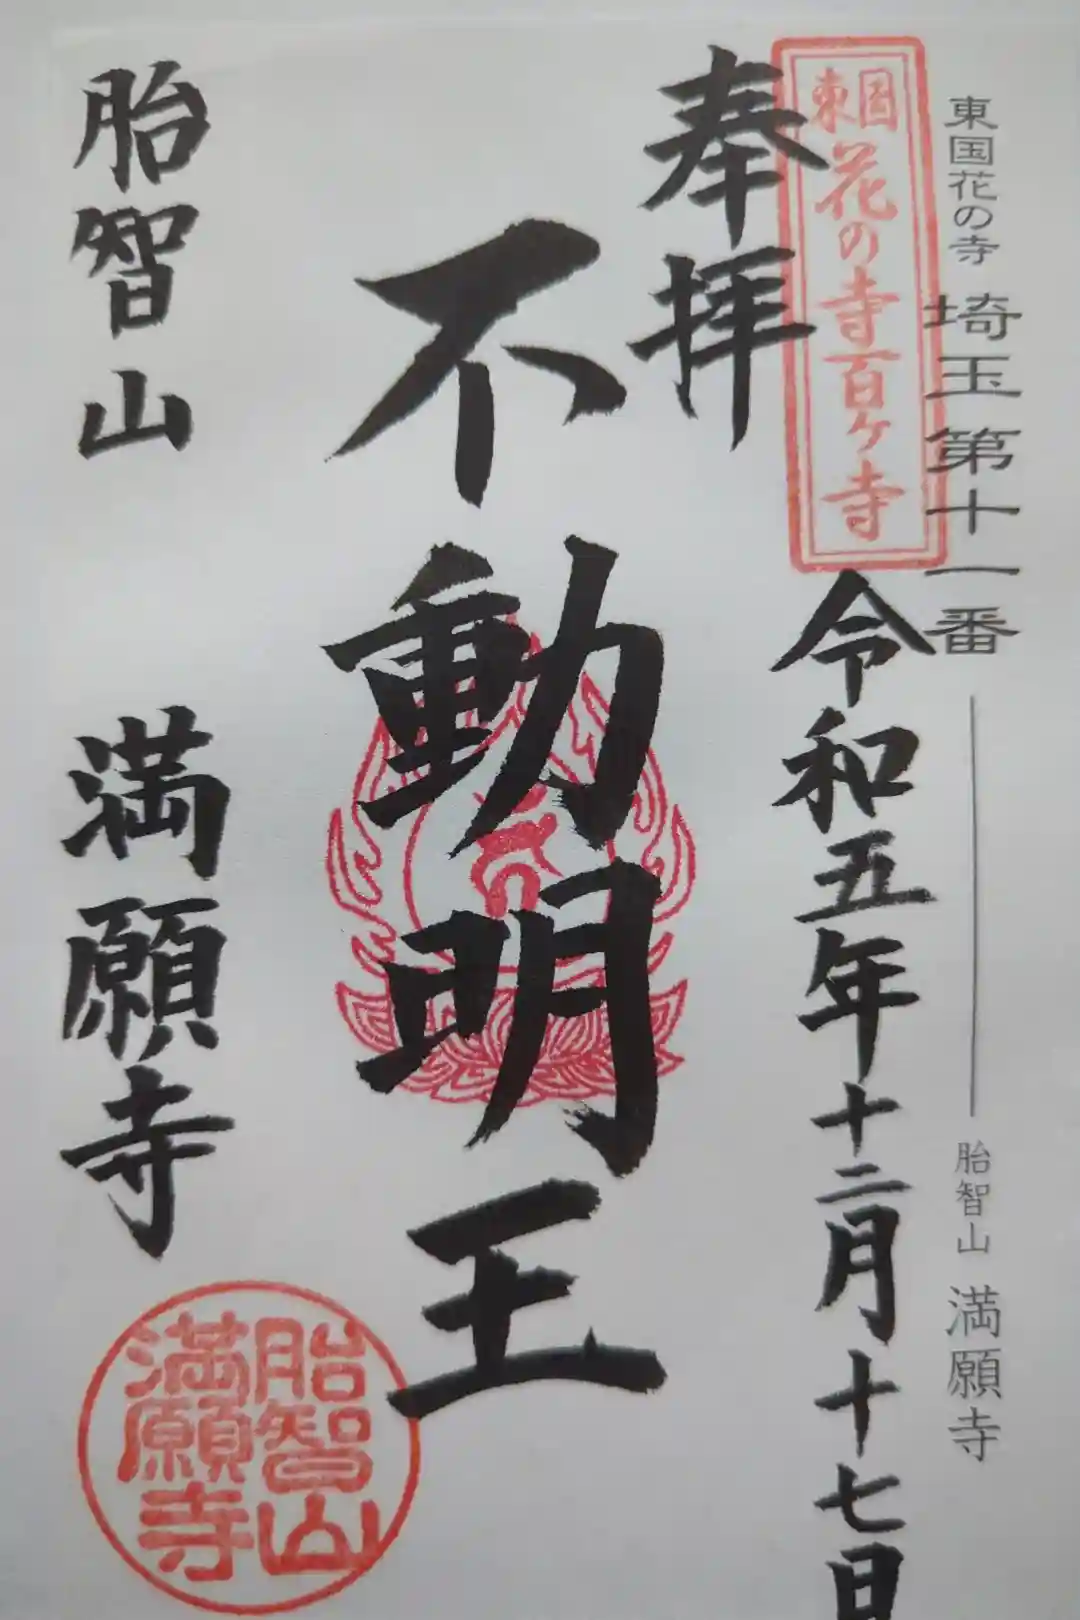 東国花の寺 埼玉第十一番
胎智山 満願寺
東国花の寺百ヶ寺
奉拝
令和五年十二月十七日
不動明王
胎智山 満願寺
胎智山
満願寺